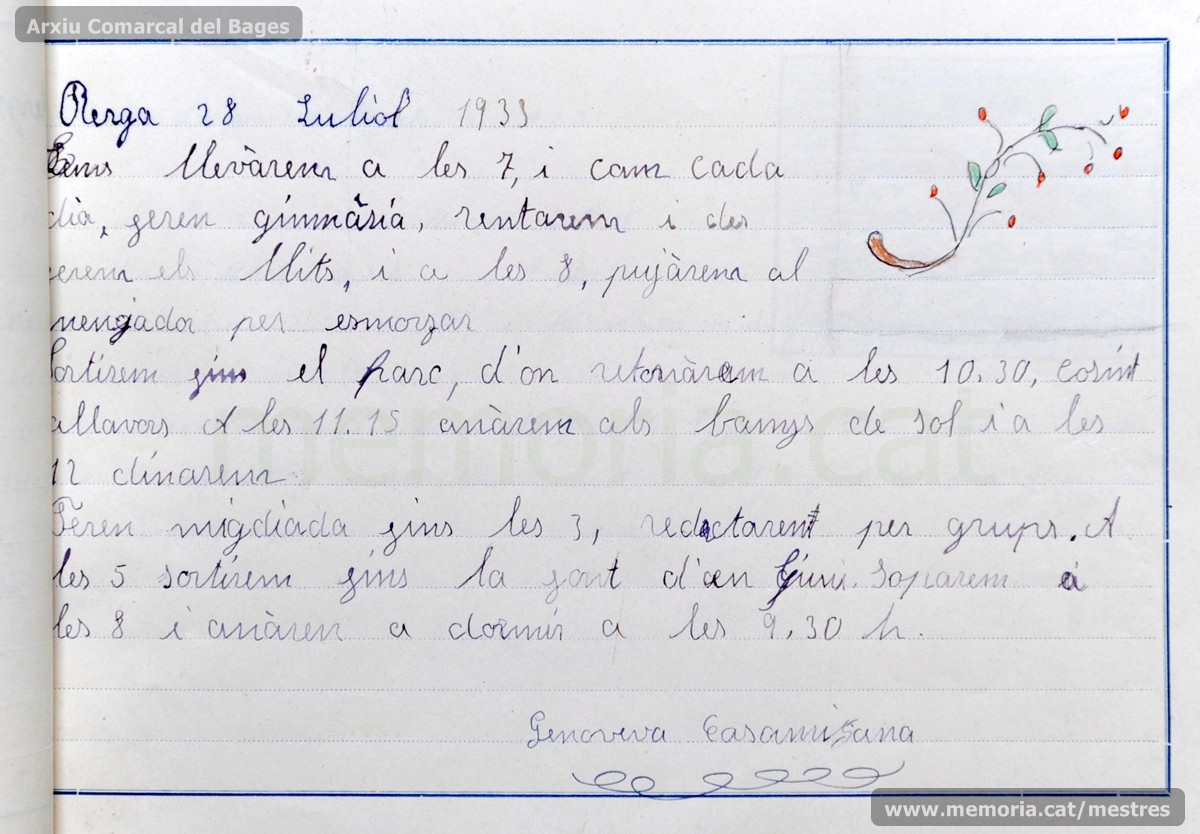 Arxiu Comarcal del Bages
Berga 28 Juliol 1933
Ens llevàrem a les 7, i com cada
dia, feren gimnàsia, rentarem i des
ferem els llits, i a les 8, pujàrem al
menjador per esmorzar
Sortirem fins el parc, d'on retornàrem a les 10.30, cosint
allavors A les 11.15 anàrem als banys de sol i a les
12 dinarem.
Feren migdiada fins les 3, redactarem per grups. A
les 5 sortirem fins la font d'en Soparem a
les 8 i anàren a dormir a les 9.30 h.
Genoveva Casamitjana
memoria.cat
www.memoria.cat/mestres